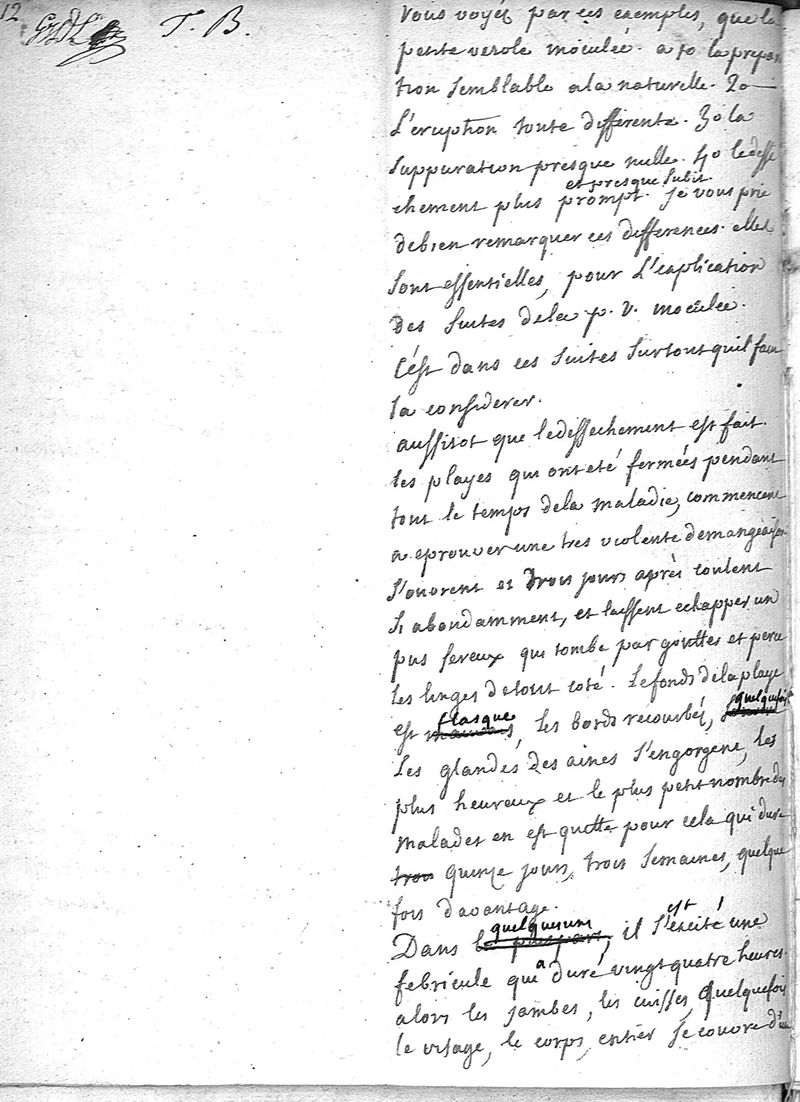 12
T. B.
Vous voyés par ces exemples, que la
petite verole inoculée. a 1o la prepara
tion semblable ala naturelle. 2o
L'eruption toute differente. 3o la
suppuration presque nulle. 4o le desse
et presque subit.
chement plus prompt. Je vous prie
debien remarquer ces differences. elles
sont essentielles, pour L'explication
Des suites dela p. V. inoculée.
C'est dans ces suites surtout quil faut
la considerer.
aussitot que ledessechement est fait.
les playes qui ont eté fermées pendant
tout le temps dela maladie, commencent
a eprouver une tres violente demangeaison
s'ouvrent et trois jours après coulent
si abondamment, et laissent echapper un
pus sereux qui tombe par gouttes et perce
les linges detout coté. Le fonds dela playe
flasque quelquefois
est, les bords recourbés,
Les glandes des aines s'engorgent, les
plus heureux et le plus petit nombre des
malades en est quitte pour cela qui dure
trois quinze jours, trois semaines, quelque
fois d'avantage.
quelquesuns est
Dans la pluspart, il s'excité une
febricule qui a duré vingt quatre heures.
alors les jambes, les cuisses, quelquefois
le visage, le corps, entier se couvre d'un